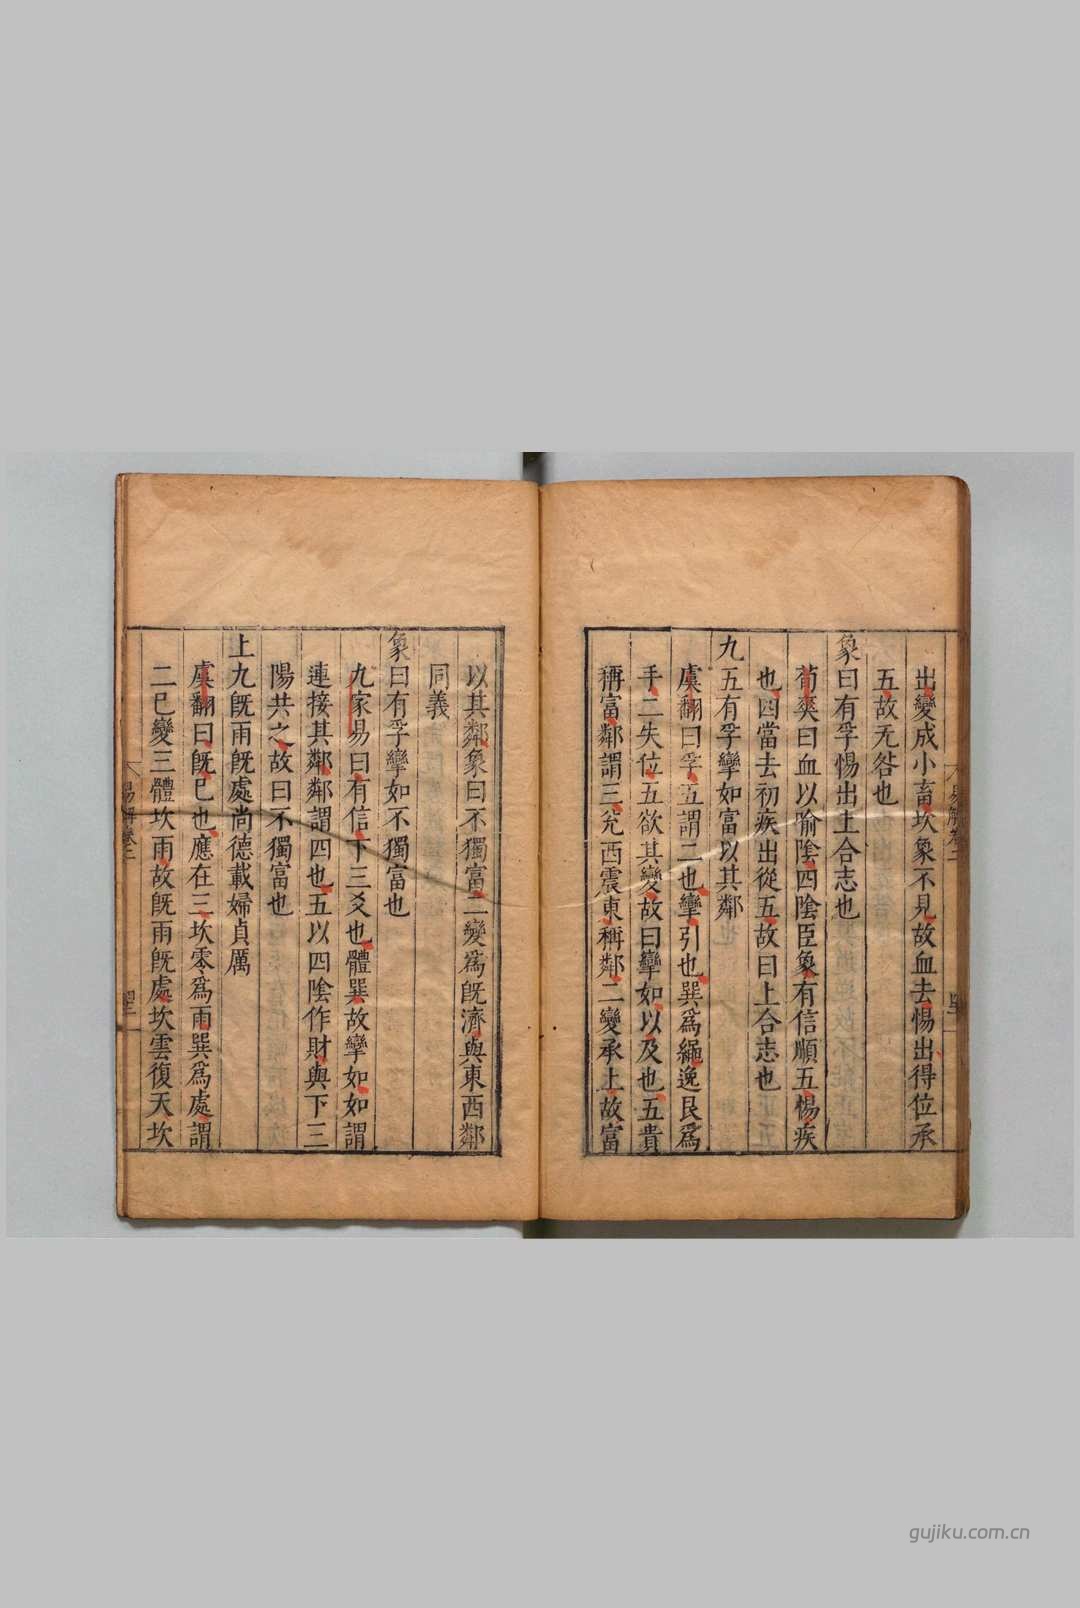 出變成小畜坎象不見故血去惕出得位承
五故无咎也
象曰有孚惕出上合志也
荀爽曰血以喻陰四陰臣象有信順五惕疾
也四當去初疾出從五故曰上合志也
九五有孚攣如富以其鄰
虞翻曰孚五謂二也攣引也巽爲繩逸艮爲
手二失位五欲其變故曰攣如以及也五貴
稱富鄰謂三兊西震東稱鄰二變承上故富
以其鄰象曰不獨富二變爲旣濟與東西鄰
同義
象曰有孚攣如不獨富也
九家易曰有信下三爻也體巽故攣如如謂
連接其鄰鄰謂四也五以四陰作財與下三
陽共之故曰不獨富也
上九旣雨旣處尚德載婦貞厲
虞翻曰旣已也應在三坎零爲雨巽爲處謂
二巳變三體坎雨故旣雨旣處坎雲復天坎
易解卷二
gujiku.com.cn